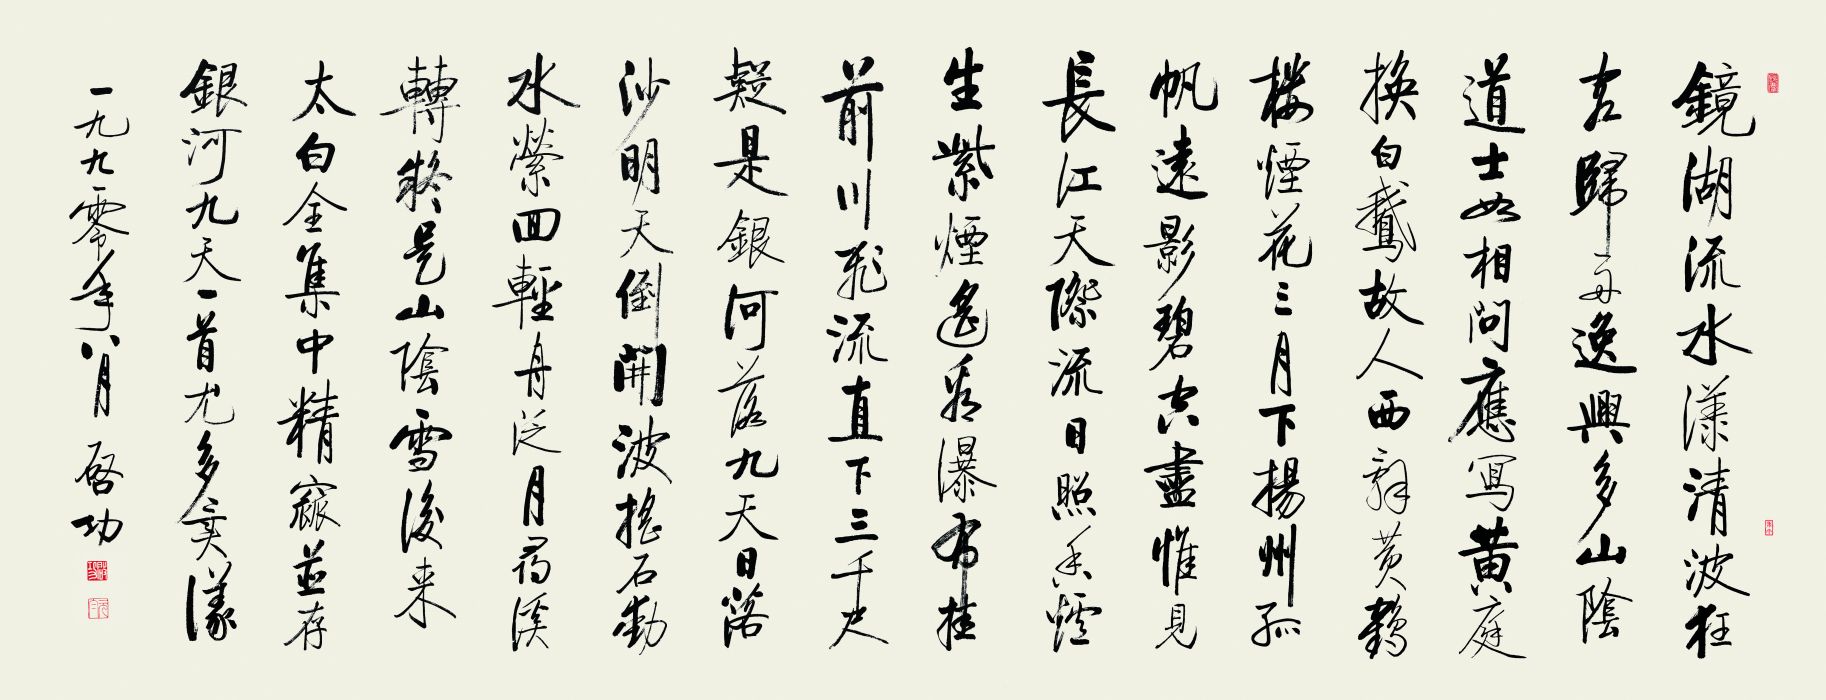 鏡湖流水漾清波狂
客歸舟逸興多山陰
道士如相問應寫黄庭
換白鵝故人西辭黄鶴
樓煙花三月下揚州孤
帆遠影碧空盡惟見
長江天際流日照香爐
生紫煙遙看瀑布挂
前川飛流直下三千尺
疑是銀河落九天日落
沙明天倒開波搖石動
水縈回輕舟泛月尋溪
轉疑是山陰雪後来
太白全集中精窳並存
銀河九天一首尤多異議
一九九零年八月 啓功